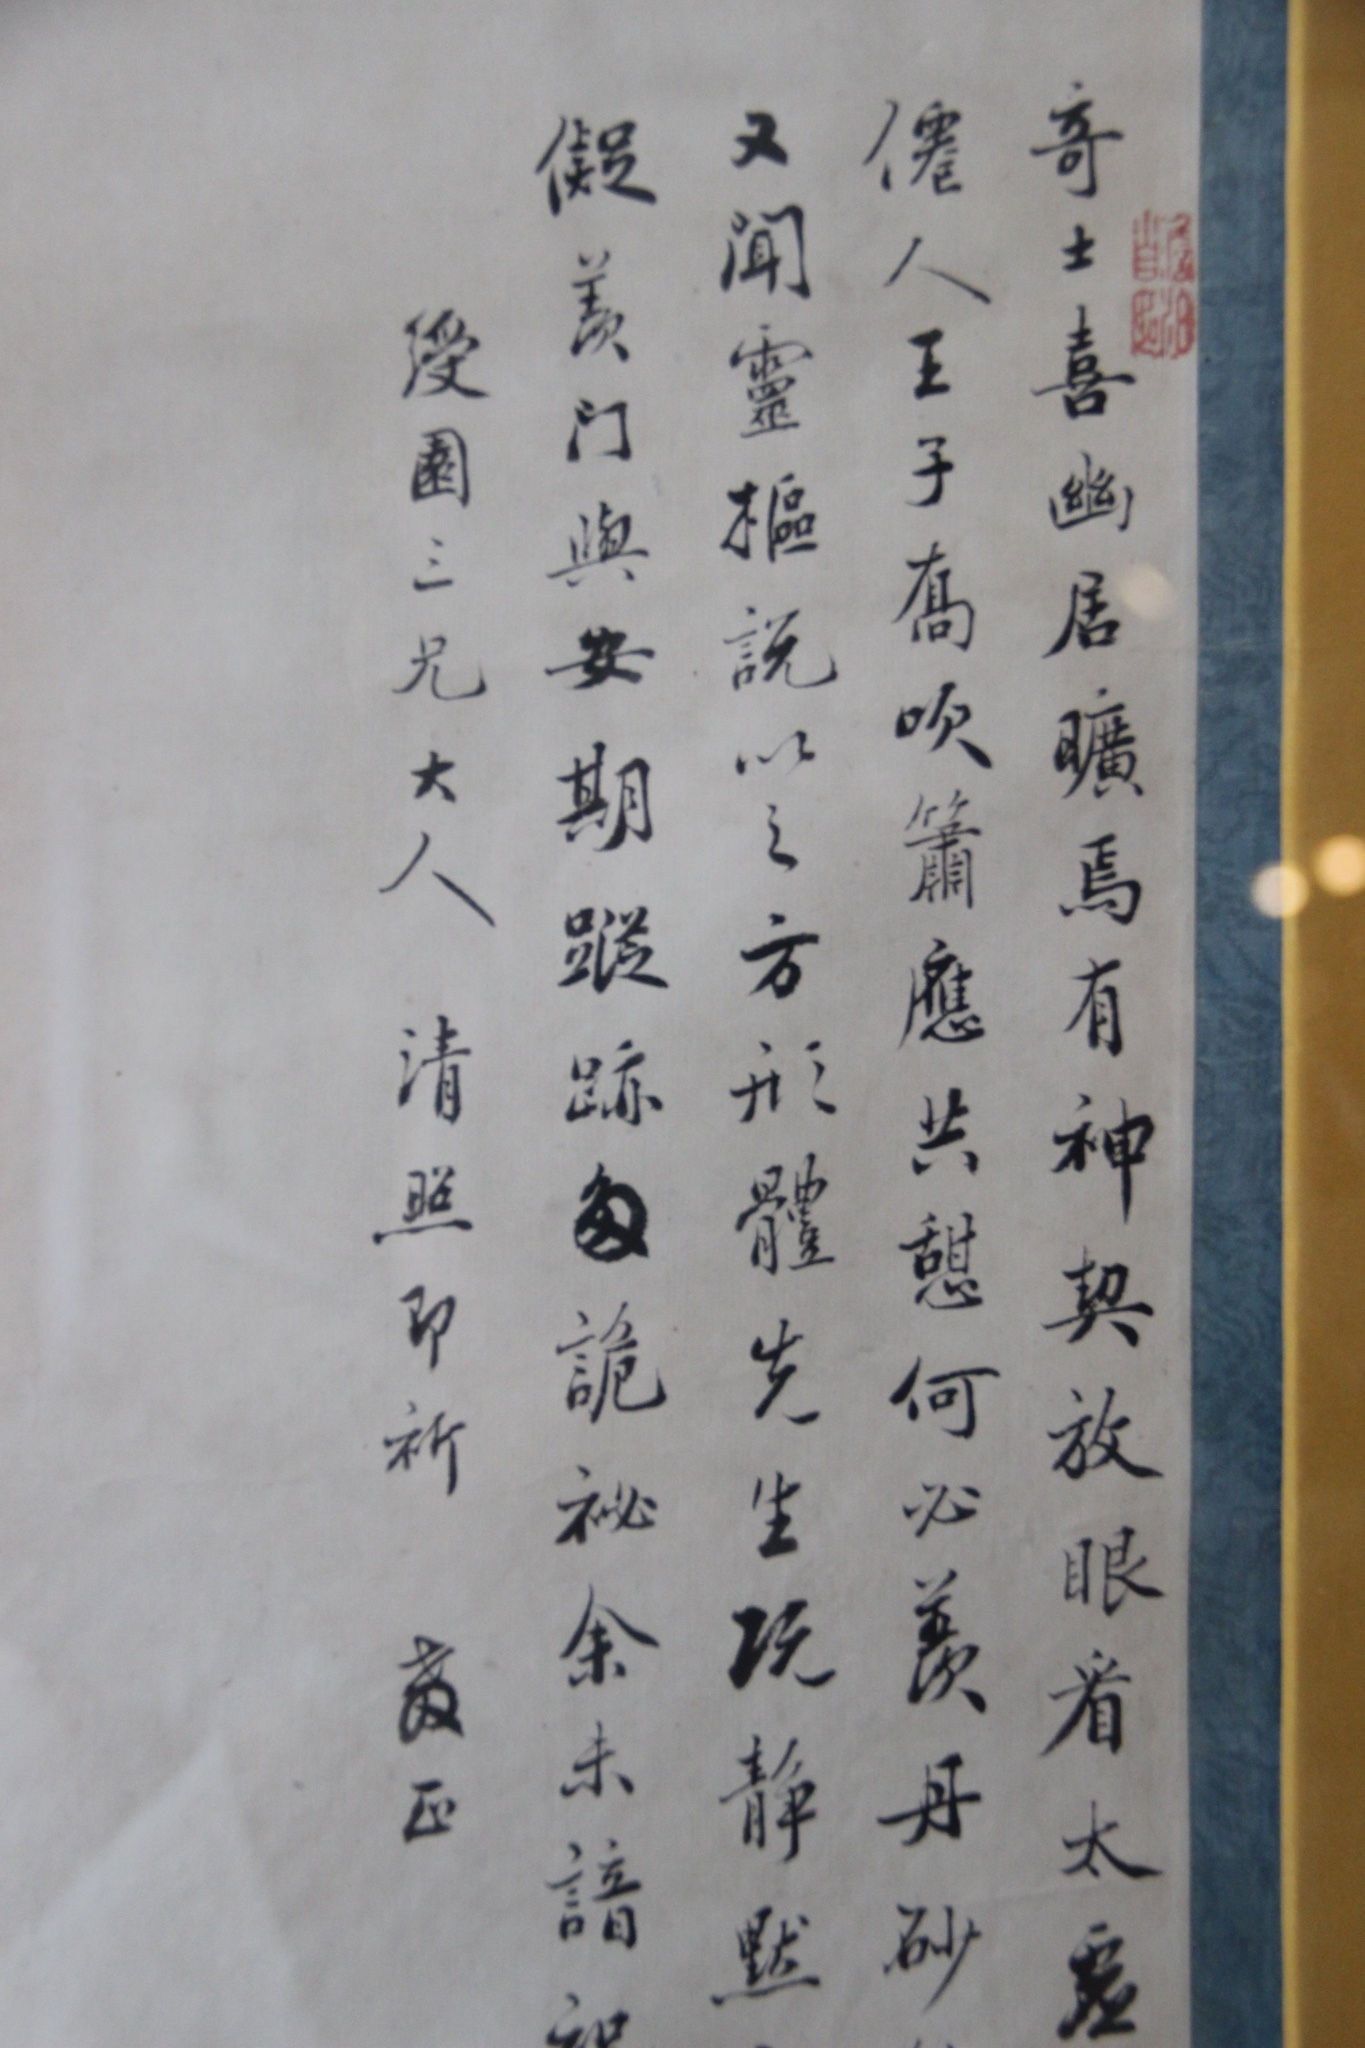 奇士喜幽居曠焉有神契放眼看太虛
僊人王子喬吹簫應共憩何必羨丹砂
又聞靈樞說以之方形體先生玩靜默
儗羨門與安期蹤跡多詭祕余未諳
綬園三兄大人 清照即祈 教正